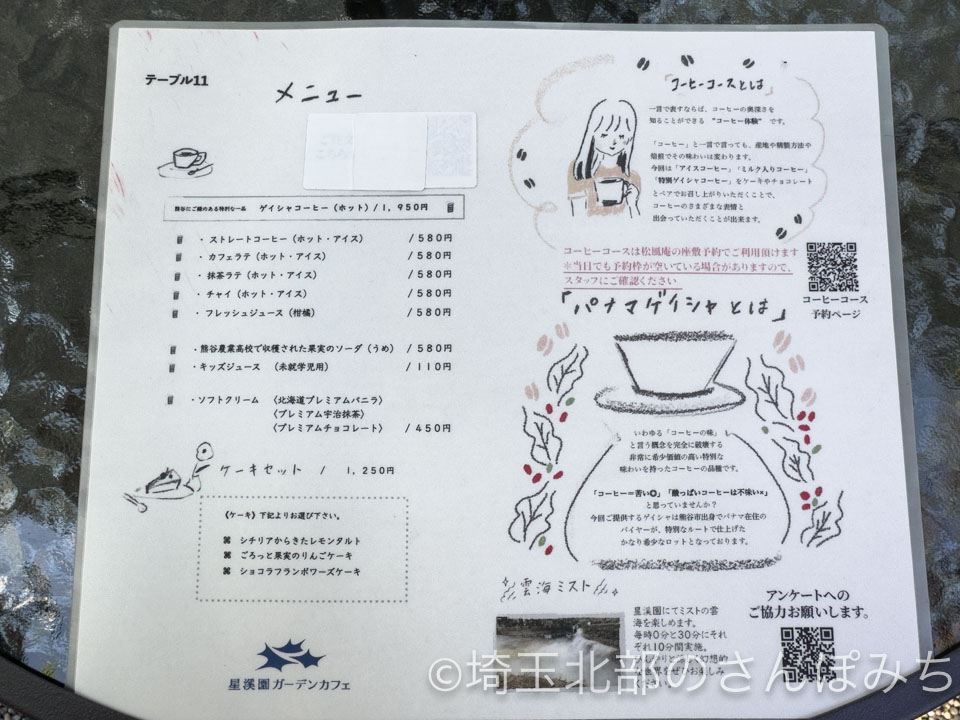 テーブル11
メニュー
熊谷にご縁のある特別な一品 ゲイシャコーヒー（ホット）/1,950円
・ストレートコーヒー（ホット・アイス） /580円
・カフェラテ（ホット・アイス） /580円
・抹茶ラテ（ホット・アイス） /580円
・チャイ（ホット・アイス） /580円
・フレッシュジュース（柑橘） /580円
・熊谷農業高校で収穫された果実のソーダ（うめ） /580円
・キッズジュース （未就学児用） /110円
・ソフトクリーム 〈北海道プレミアムバニラ〉
〈プレミアム宇治抹茶〉
〈プレミアムチョコレート〉 /450円
ケーキセット / 1,250円
《ケーキ》下記よりお選び下さい。
⌘ シチリアからきたレモンタルト
⌘ ごろっと果実のりんごケーキ
⌘ ショコラフランボワーズケーキ
星溪園ガーデンカフェ
「コーヒーコースとは」
一言で表すならば、コーヒーの奥深さを
知ることができる “コーヒー体験” です。
「コーヒー」と一言で言っても、産地や精製方法や
焙煎でその味わいは変わります。
今回は「アイスコーヒー」「ミルク入りコーヒー」
「特別ゲイシャコーヒー」をケーキやチョコレート
とペアでお召し上がりいただくことで、
コーヒーのさまざまな表情と
出会っていただくことが出来ます。
コーヒーコースは松風庵の座敷予約でご利用頂けます
※当日でも予約枠が空いている場合がありますので、
スタッフにご確認ください
コーヒーコース
予約ページ
「パナマゲイシャとは」
いわゆる「コーヒーの味」
と言う概念を完全に破壊する
非常に希少価値の高い特別な
味わいを持ったコーヒーの品種です。
「コーヒー＝苦い◎」「酸っぱいコーヒーは不味い×」
と思っていませんか？
今回ご提供するゲイシャは熊谷市出身でパナマ在住の
バイヤーが、特別なルートで仕上げた
かなり希少なロットとなっております。
雲海ミスト
星溪園にてミストの雲
海を楽しめます。
毎時0分と30分にそれ
ぞれ10分間実施。
幻想的
世界をぜひお楽しみ
ください。
アンケートへの
ご協力お願いします。
©埼玉北部のさんぽみち